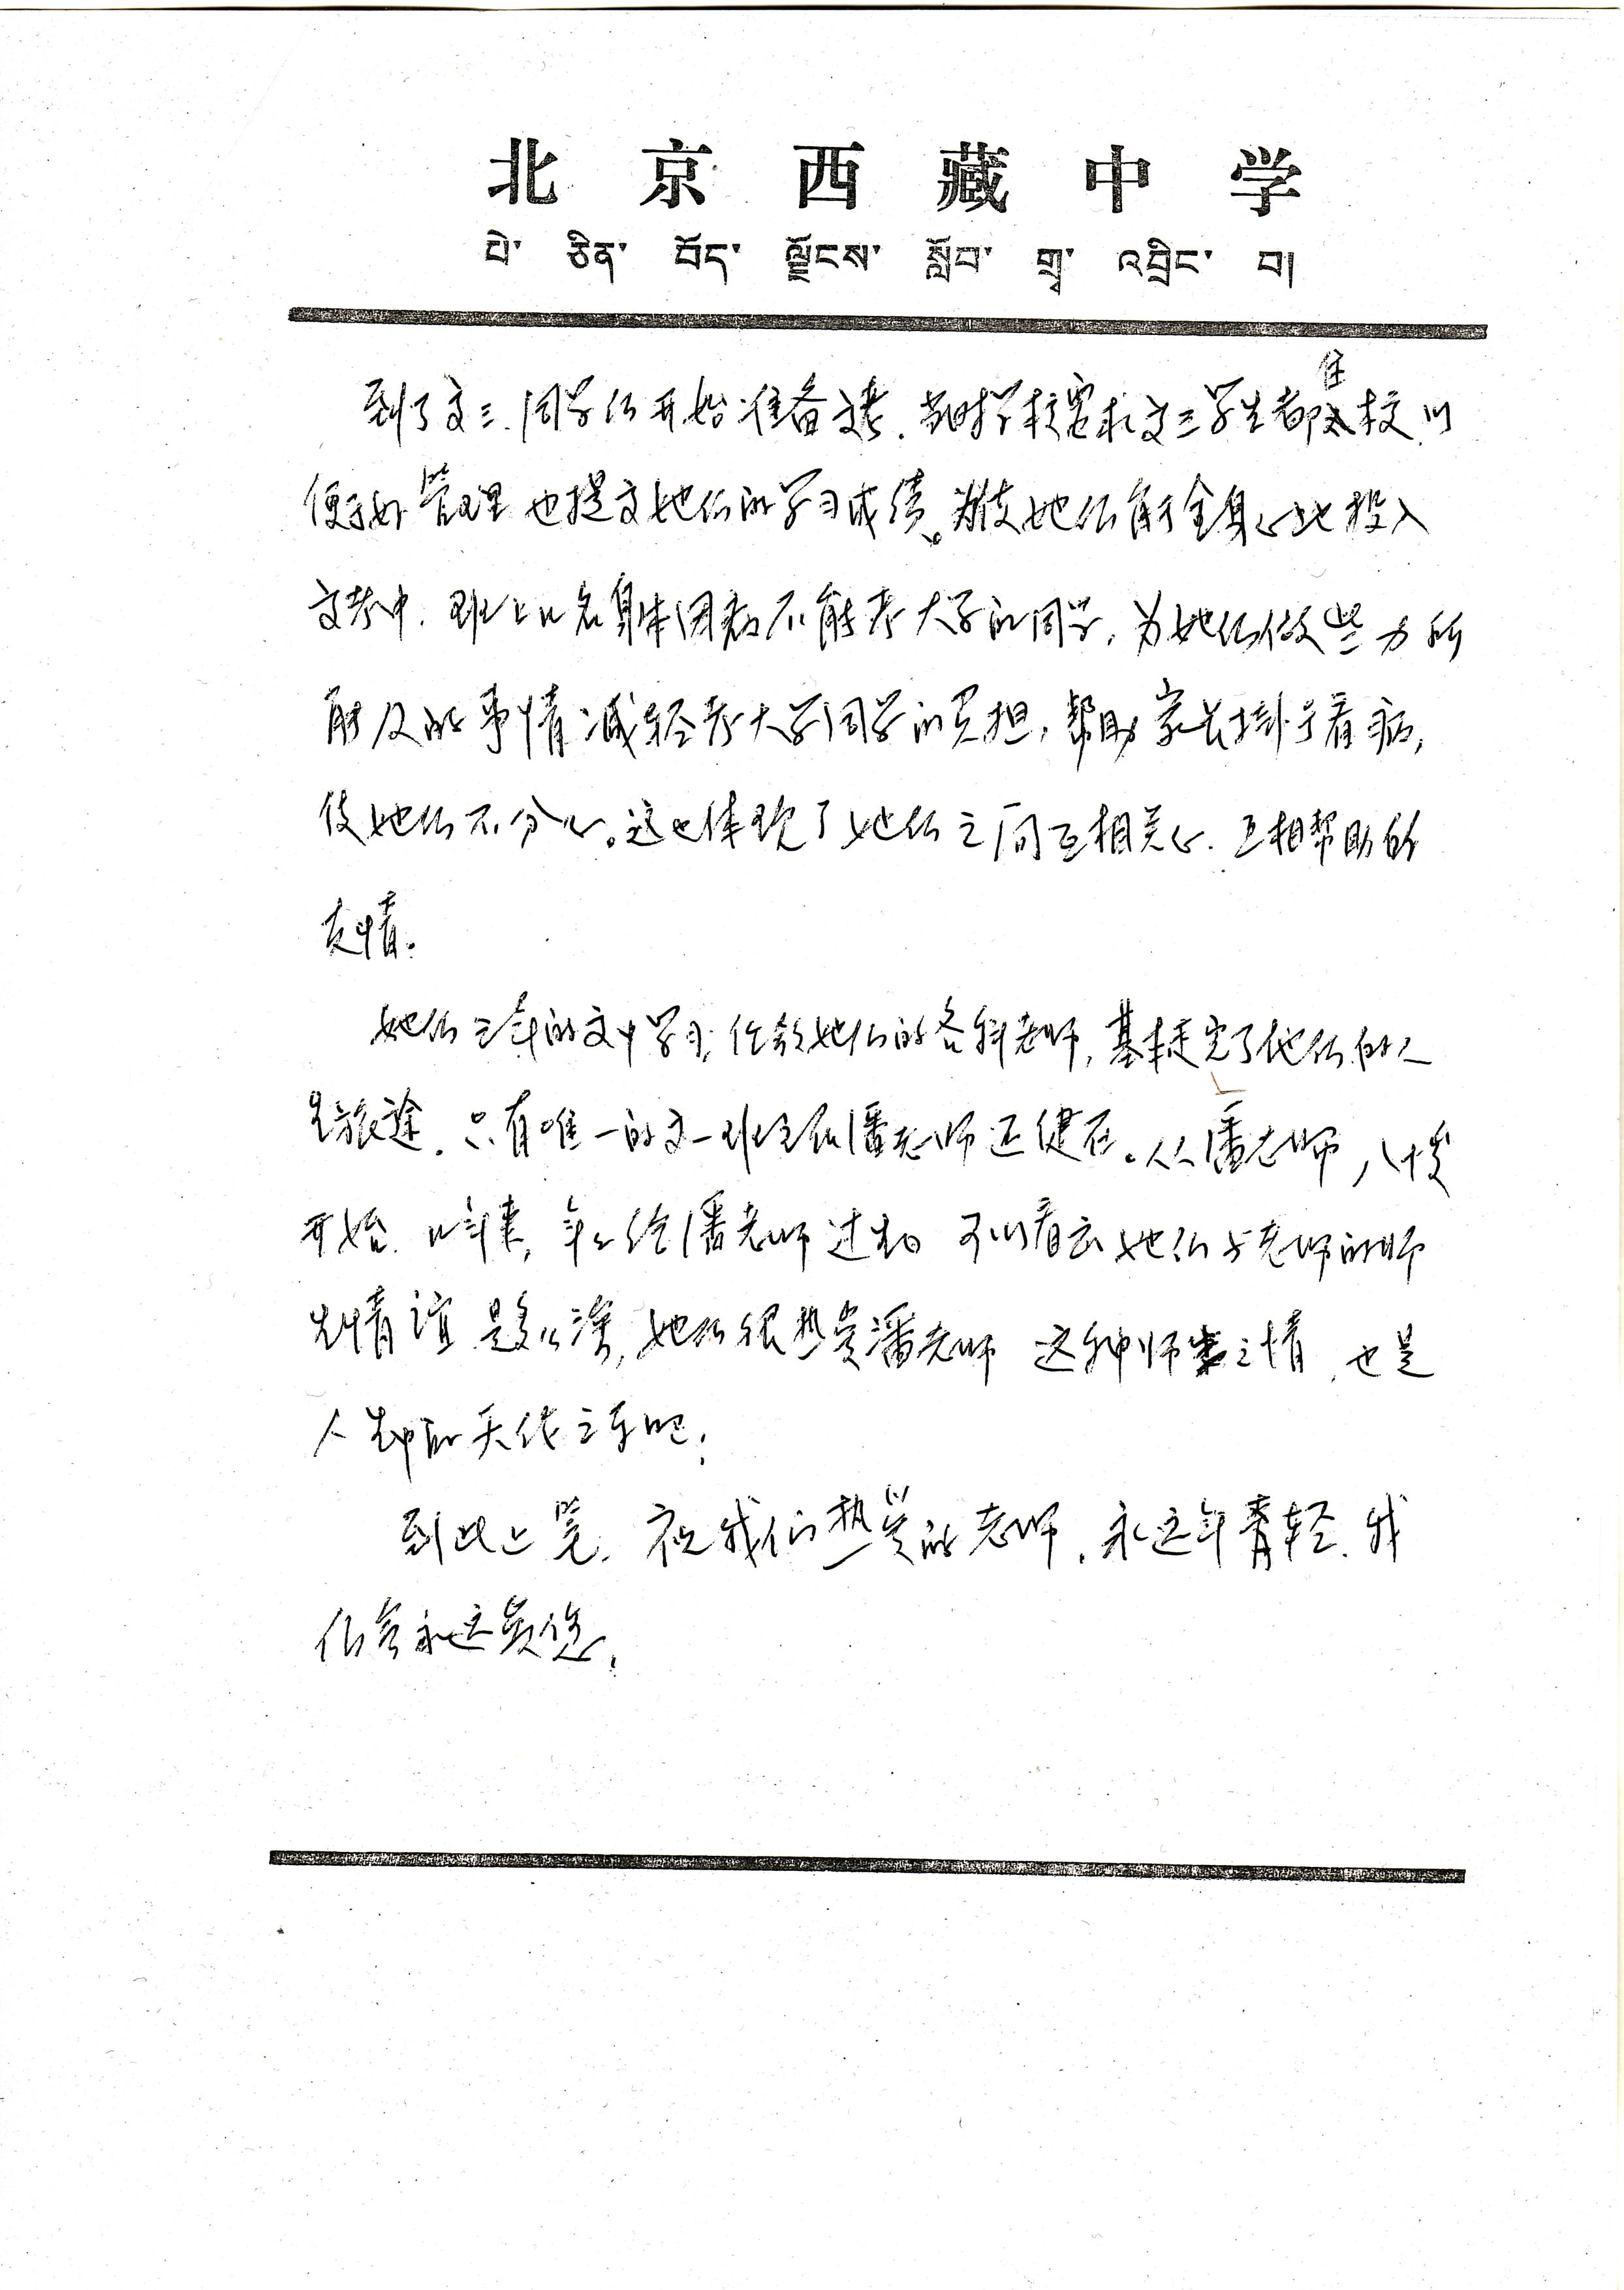 北京西藏中学
པེ་ ཅིན་ བོད་ ལྗོངས་ སློབ་ གྲྭ་ འབྲིང་ བ།
到了高三,同学们开始准备高考,当时学校要求高三学生都住校,以
便于好管理也提高她们的学习成绩。为使她们能全身心地投入
高考中,班上几名身体因病不能考大学的同学,为她们做些力所
能及的事情减轻考大学同学的负担,帮助家长挂号看病,
使她们不分心。这也体现了她们之间互相关心、互相帮助的
友情。
她们三年的高中学习,任教她们的各科老师,基本走完了他们的人
生旅途,只有唯一的高一班主任潘老师还健在。从潘老师八十岁
开始,几年来,年年给潘老师过生日 可以看出她们与老师的师
生情谊是多么深,她们很热爱潘老师 这种师生之情,也是
人生中的天伦之乐吧!
到此上笔,祝我们热爱的老师,永远年青轻,我
们会永远爱您!